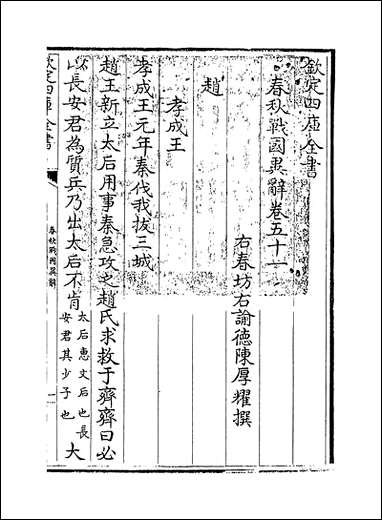 欽定四庫全書
春秋戰國異辭卷五十一
右春坊右諭德陳厚耀撰
趙
孝成王
孝成王元年秦伐我拔三城
趙王新立太后用事秦急攻之趙氏求救于齊齊曰必
以長安君為質兵乃出太后不肯太后惠文后也長安君其少子也大
欽定四庫全書
春秋戰國異辭
一